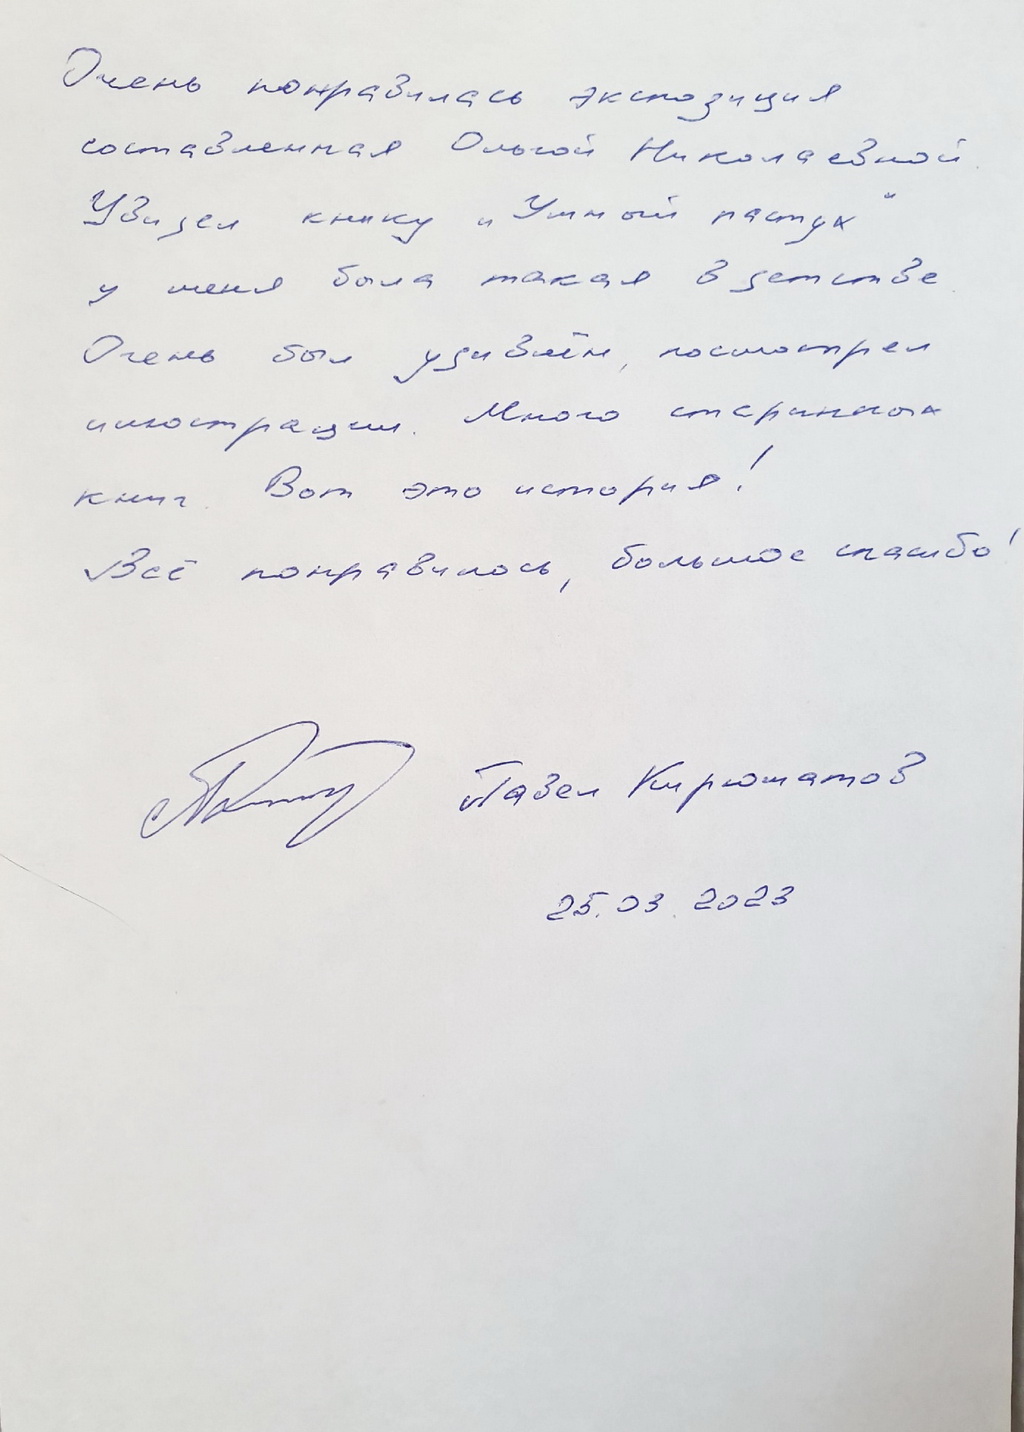 Очень понравилась экспозиция
составленная Ольгой Николаевной.
Увидел книку „Умный пастух"
у меня была такая в детстве.
Очень был удивлён, посмотрел
иллюстрации. Много старинных
книг. Вот это история!
Всё понравилось, большое спасибо!
Павел Кирюшатов
25.03.2023